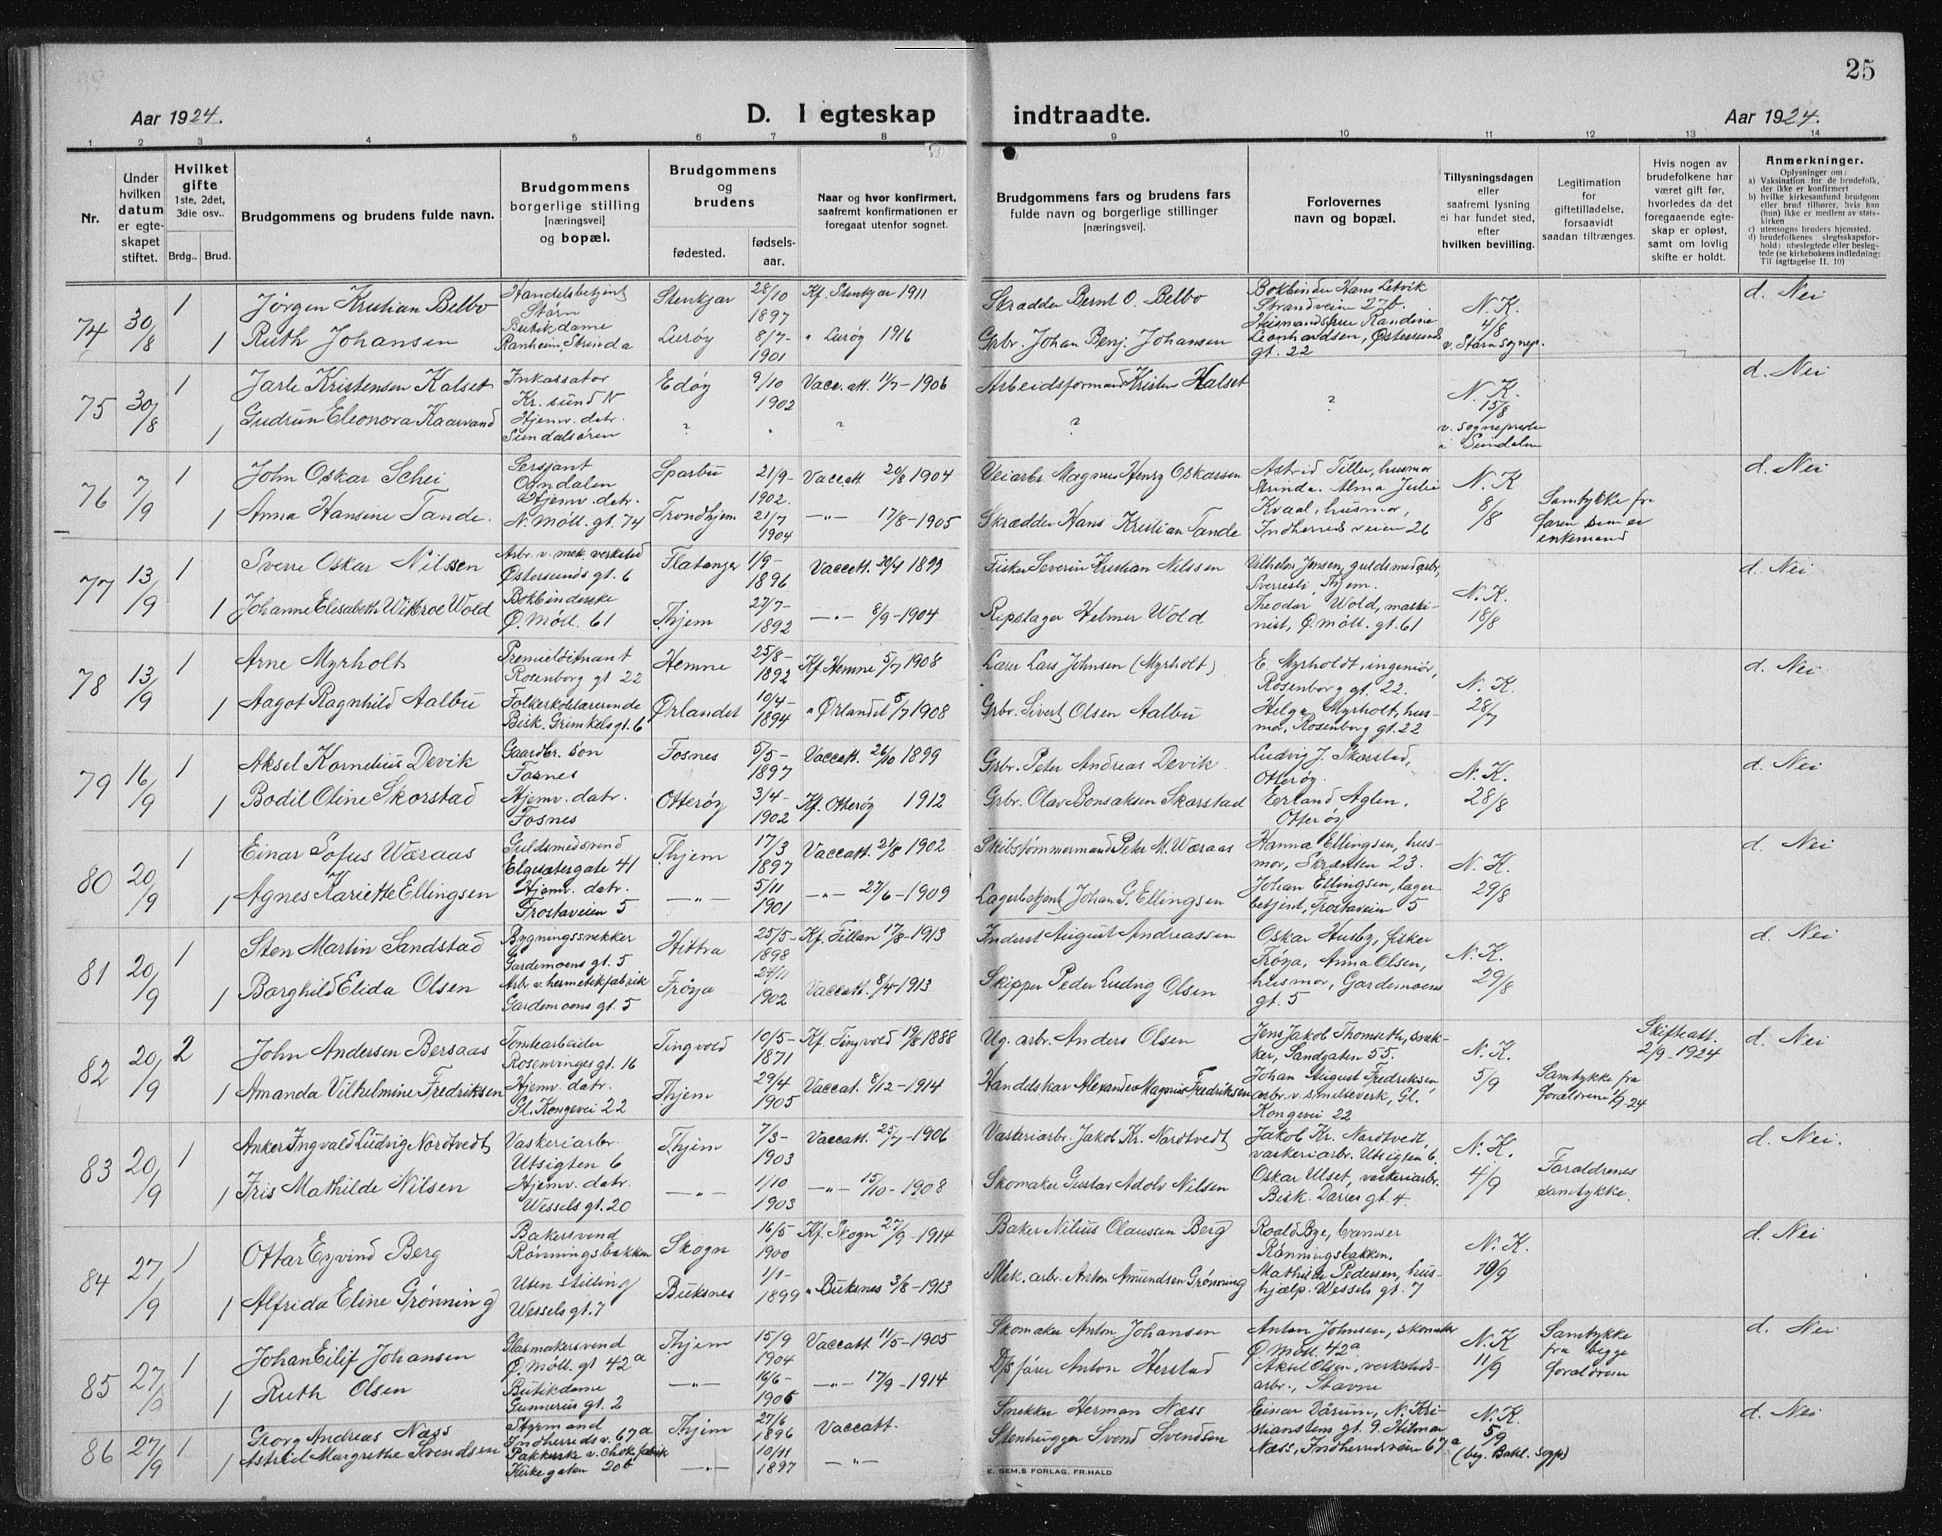 25
Aar 1924.
D. I egteskap indtraadte.
Aar 1924.
1 2 3 4 5 6 7 8 9 10 11 12 13 14
Nr.
Under hvilken datum er egteskapet stiftet.
Hvilket gifte 1ste, 2det, 3die osv..
Brdg.. Brud.
Brudgommens og brudens fulde navn.
Brudgommens borgerlige stilling [næringsvei] og bopæl.
Brudgommens og brudens
fødested. fødselsaar.
Naar og hvor konfirmert, saafremt konfirmationen er foregaat utenfor sognet.
Brudgommens fars og brudens fars fulde navn og borgerlige stillinger [næringsvei].
Forlovernes navn og bopæl.
Tillysningsdagen eller saafremt lysning ei har fundet sted, efter hvilken bevilling.
Legitimation for giftetilladelse, forsaavidt saadan tiltrænges.
Hvis nogen av brudefolkene har været gift før, hvorledes da det foregaaende egteskap er opløst, samt om lovlig skifte er holdt.
Anmerkninger.
Oplysninger om:
a) Vaksination for de brudefolk, der ikke er konfirmert
b) hvilke kirkesamfund brudgom eller brud tilhører, hvis han (hun) ikke er medlem av statskirken
c) utensogns bruders hjemsted.
d) brudefolkenes slegtsskapsforhold: ubeslegtede eller beslegtede (se kirkebokens indledning: Til iagttagelse II. 10)
74 30/8 1 Jørgen Kristian Belbo Handelsbetjent Størn Stenkjær 28/10 1897 Kf. Stenkjær 1911 Skrædder Bernt O. Belbo Bokbinder Hans Letvik Strandveien 27b. N. K. 4/8 d. Nei
1 Ruth Johansen Butikdame Ranheim, Strinda Lurøy 8/7- 1901 " Lurøy 1916 Grbr. Johan Benj. Johansen Randine Leonhardsen, Østersunds gt. 22
75 30/8 1 Jarle Kristensen Kalset Inkassator Kr. sund N Edøy 9/10 1902 Vacc. att. 11/7-1906 Arbeidsformand Kristen Halset ? N. K. 15/8 d. Nei
1 Gudrun Eleonora Kaarvand Hjemv. datr. Sundalsøren ? " ? ? v. sogneprsten i Sundalen
76 7/9 1 John Oskar Schei Sersjant Ogndalen Sparbu 21/9- 1902. Vaccatt 20/8 1904 Veiarb. Magnus Henry Oskarsen Astrid Tiller, husmor Strinda. Alma Julie N. K 8/8 d. Nei
1 Anna Hansine Tande. Hjemv. datr. N. Møll. gt. 74 Trondhjem 21/7 1904 -"- 17/8-1905 Skrædder Hans Kristian Tande Kvaal, husmor, Indherredsveien 26 Samtykke fra faren som er enkemand
77 13/9 1 Sverre Oskar Nilssen Arb. v. mek. verksted Østersunds gt. 6 Flatanger 1/9- 1896 Vaccatt. 20/4 1899 Fisker Severin Kristian Nilssen Vilhelm Jensen, guldsmedarb, Sverresli, Thjem. N. K. 18/8 d. Nei
1 Johanne Elisabeth Wold Bokbinderske Ø. Møll. 61 Thjem 27/7- 1892 -"- 8/9-1904 Ripslager Helmer Wold Theodor Wold, maskinist, Ø. møll. gt. 61
78 13/9 1 Arne Myrholt Premierløitnant Rosenborg gt 22 Hemne 25/8- 1892 Kf. Hemne 5/7 1908 Lærer Lars Johnsen (Myrholt) E. Myrholdt, ingeniør, Rosenborg gt. 22. N. K. 28/7 d. Nei.
1 Aagot Ragnhild Aalbu Folkeskolelærerinde Bisk. Grimkels gt. 6 Ørlandet 10/4- 1894 " Ørlandet 5/7 1908 Grbr. Sivert Olsen Aalbu Helga Myrholt, husmor, Rosenborg gt. 22
79 16/9 1 Aksel Kornelius Devik Gaardbr. søn Fosnes Fosnes 5/5- 1897 Vaccatt. 26/10 1899 Grbr. Peter Andreas Devik. Ludvig J. Skorstad, Otterøy. N. K. 28/8 d. Nei
1 Bodil Oline Skorstad Hjemv. datr. Fosnes Otterøy 3/4- 1902 Kf. Otterøy 1912 Grbr. Olav Bonsaksen Skorstad Erland Aglen, Otterøy
80 20/9 1 Einar Sofus Wæraas Guldsmedsvend Elgesætergate 41 Thjem 17/3 1897 Vaccatt. 21/8 1902 Skibstømmermand Peter M. Wæraas Hanna Ellingsen, husmor, Skrænten 23. N. K. 29/8 d. Nei
1 Agnes Kariette Ellingsen Hjemv. datr. Frostaveien 5 -"- 5/11 1901 -"- 27/6-1909 Lagerbetjent Johan G. Ellingsen Johan Ellingsen, lagerbetjent, Frostaveien 5
81 20/9 1 Sten Martin Sandstad Bygningssnekker Gardemoens gt. 5 Hittra 25/5- 1898 Kf. Fillan 17/8-1913 Inderst August Andreassen Oskar Husby, fisker Frøya, Anna Olsen, N. K. 29/8 d. Nei
1 Borghild Elida Olsen Arb. v. hermetikfabrik Gardemoens gt. 5 Frøya 24/11 1902 Vaccatt. 8/4-1913 Skipper Peder Ludvig Olsen husmor, Gardemoens gt. 5
82 20/9 2 John Andersen Bersaas Tomtearbeider Rosenvinges gt. 16 Tingvold 10/5- 1871 Kf. Tingvold 19/8 1888 Ug. arb. Anders Olsen Jens Jakob Thomseth, snekker, Sandgaten 55. N. K. 5/9 Skifteatt. 2/9-1924 d. Nei
1 Amanda Vilhelmine Fredriksen Hjemv. datr. Gl. Kongevei 22 Thjem 29/4 1905 Vaccat. 8/12-1914 Handelskar Alexander Magnus Fredriksen Johan August Fredriksen, arb. v. smelteverk, Gl. Kongevei 22 Samtykke fra forældrene 1/9-24
83 20/9 1 Anker Ingvald Ludvig Nordtvedt Vaskeriarbr. Utsigten 6 Thjem 7/3- 1903 Vaccatt. 25/7-1906 Vaskeriarb. Jakob Kr. Nordtvedt Jakob Kr. Nordtvedt, vaskeriarbr. Utsigten 6. N. K. 4/9 d. Nei.
1 Iris Mathilde Nilsen Hjemv. datr. Wessels gt. 20 -"- 1/10 1903 -"- 15/10-1908 Skomaker Gustav Adolv Nilsen Oskar Ulset, vaskeriarbr. Bisk. Darres gt. 4. Forældrenes samtykke.
84 27/9 1 Ottar Eyvind Berg Bakersvend Rønningsbakken Skogn 16/5 1900 Kf. Skogn 27/9-1914 Baker Nilius Olaussen Berg Roald Bye, Rønningsbakken. N. K. 10/9 d. Nei
1 Alfrida Eline Grønning Uten stilling Wessels gt. 7 Buksnes 1/1- 1899 " Buksnes 3/8-1913 Mek. arb. Anton Amundsen Grønning Mathilde Pedersen, hushjælp. Wessels gt. 7
85 27/9 1 Johan Eilif Johansen Glasmakersvend Ø. Møll. gt 42a Thjem 15/9 1904 Vaccatt 11/5-1905 Skomaker Anton Johansen Anton Johnsen, skomaker Ø. Møll. 42a N. K 11/9 Samtykke fra begge forældrene d. Nei
1 Ruth Olsen Butikdame Gunnerus gt. 2 -"- 16/6- 1906 -"- 17/9-1914 D/s fører Anton Herstad Aksel Olsen, verkstedsarbr., Stavne
86 27/9 1 Georg Andreas Næss Styrmand Indherreds v. 67a Thjem 27/6 1896 Vaccatt. Snekker Herman Næss Einar Dårum, N. Kristianstens gt. 9. Hilmar N. K. 5/9 d. Nei
1 Astrid Margrethe Svendsen Pakkerske v. Chok. fabrik Kirkegaten 20b -"- 10/11 1897 -"- Stenhugger Svend Svendsen Næss, Indherredsveien 67a (bej. Bakl. sogp)
E. SEM,S FORLAG, FR.HALD